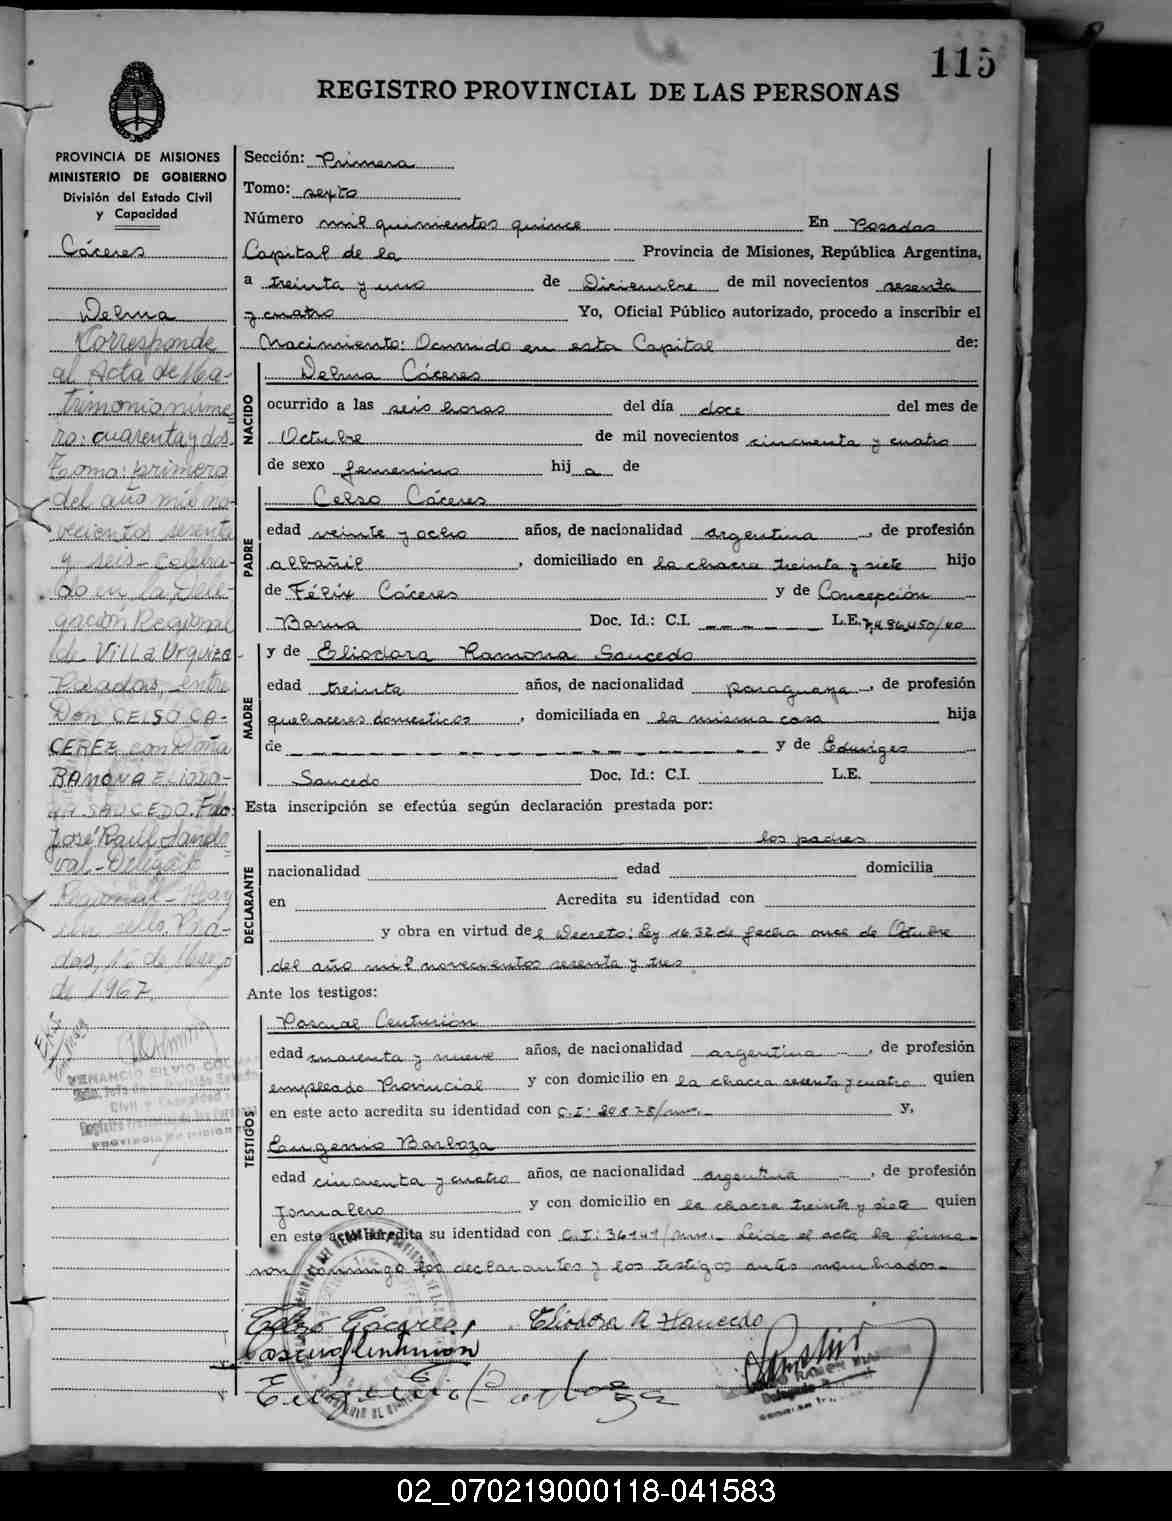 115
REGISTRO PROVINCIAL DE LAS PERSONAS
PROVINCIA DE MISIONES
MINISTERIO DE GOBIERNO
División del Estado Civil
y Capacidad
Cáceres
Delma
Corresponde
al Acta de Ma-
trimonio núme-
ro: cuarenta y dos
Tomo: primero
del año mil no-
vecientos sesenta
y seis - celebra-
do en la Dele-
gación Regional
de Villa Urquiza
Posadas, entre
Don CELSO CA-
CEREZ con Doña
RAMONA ELIODO-
RA SAUCEDO. Fdo:
José Raúl Sando-
val - Delegado
Regional
das, 1º de Mayo
de 1967.
VENANCIO SILVIO
Sección: Primera
Tomo: sexto
Número mil quinientos quince En Posadas
Capital de la Provincia de Misiones, República Argentina,
a treinta y uno de Diciembre de mil novecientos sesenta
y cuatro Yo, Oficial Público autorizado, procedo a inscribir el
Nacimiento: Ocurrido en esta Capital de:
NACIDO
Delma Cáceres
ocurrido a las seis horas del día doce del mes de
Octubre de mil novecientos cincuenta y cuatro
de sexo femenino hij a de
PADRE
Celso Cáceres
edad veinte y ocho años, de nacionalidad argentina, de profesión
albañil, domiciliado en la chacra treinta y siete hijo
de Félix Cáceres y de Concepción
Doc. Id.: C.I. — — — — — L.E. 7,496,450/40
MADRE
y de Eliodora Ramona Saucedo
edad treinta años, de nacionalidad paraguaya, de profesión
quehaceres domesticos, domiciliada en la misma casa hija
de — — — — — — — — — y de Eduviges
Saucedo Doc. Id.: C.I. L.E.
Esta inscripción se efectúa según declaración prestada por:
DECLARANTE
los padres
nacionalidad edad domicilia
en Acredita su identidad con
y obra en virtud de l Decreto: Ley 1632 de fecha once de Octubre
del año mil novecientos sesenta y tres
Ante los testigos:
TESTIGOS
Pascual Centurión
edad cuarenta y nueve años, de nacionalidad argentina, de profesión
empleado Provincial y con domicilio en la chacra sesenta y cuatro quien
en este acto acredita su identidad con C.I: y,
Eugenio Barboza
edad cincuenta y cuatro años, de nacionalidad argentina, de profesión
Jornalero y con domicilio en la chacra treinta y siete quien
en este acto acredita su identidad con C.I: Leída el acta la firma-
ron conmigo los declarantes y los testigos antes nombrados.-
Celso Cáceres, Eliodora R Saucedo
Pascual Centurión
Eugenio Barboza
02_070219000118-041583